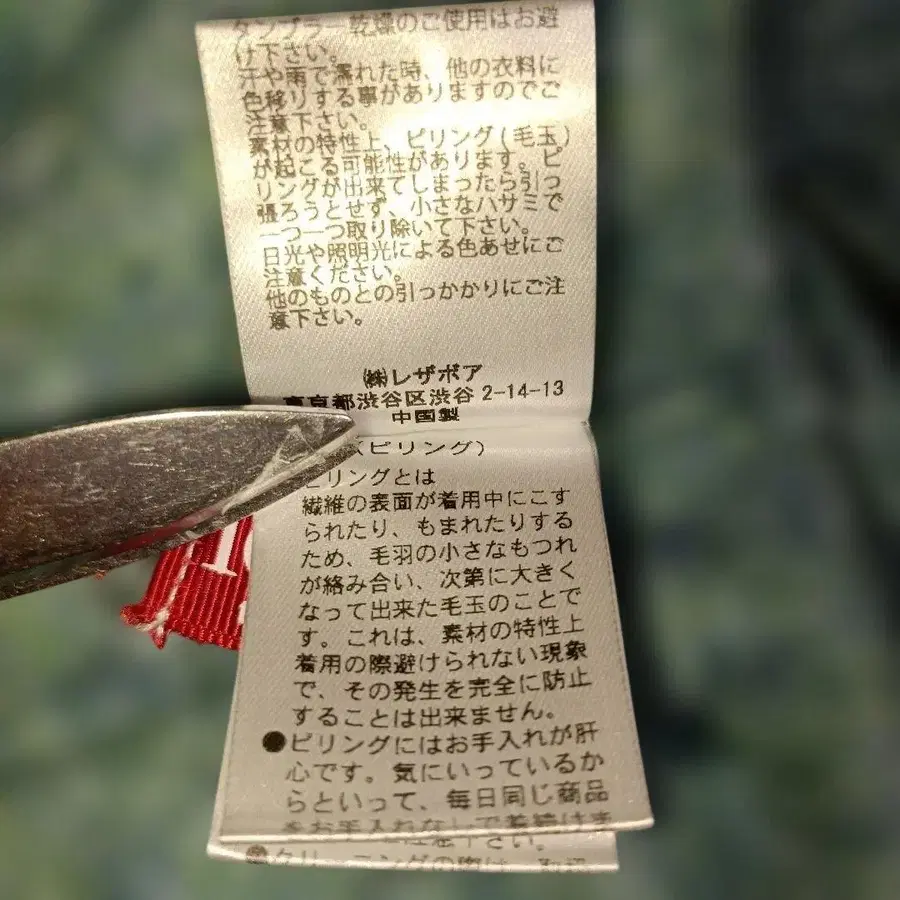 タンブラー乾燥のご使用はお避
け下さい。
汗や雨で濡れた時、他の衣料に
色移りする事がありますのでご
注意下さい。
素材の特性上、ピリング(毛玉)
が起こる可能性があります。ピ
リングが出来てしまったら引っ
張ろうとせず、小さなハサミで
一つ一つ取り除いて下さい。
日光や照明光による色あせにご
注意ください。
他のものとの引っかかりにご注
意下さい。
㈱レザボア
東京都渋谷区渋谷 2-14-13
中国製
(ピリング)
ピリングとは
繊維の表面が着用中にこす
られたり、もまれたりする
ため、毛羽の小さなもつれ
が絡み合い、次第に大きく
なって出来た毛玉のことで
す。これは、素材の特性上
着用の際避けられない現象
で、その発生を完全に防止
することは出来ません。
●ピリングにはお手入れが肝
心です。気にいっているか
らといって、毎日同じ商品
をお手入れなしで着続けま
下さい。
●クリーニングの際は、